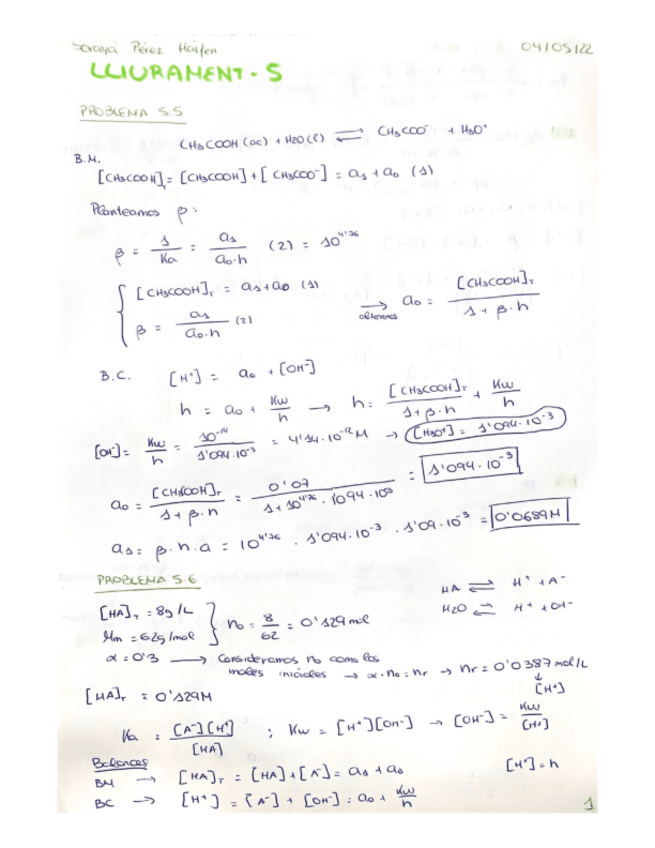 Soraya Pérez Haifen 04/05/22
LLIURAMENT - 5
PROBLEMA 5.5
CH3COOH (ac) + H2O (l) ⇌ CH3COO- + H3O+
B.M.
[CH3COOH]T = [CH3COOH] + [CH3COO-] = a1 + a0 (1)
Planteamos β:
β = 1/Ka = a1/(a0·h) (2) = 10^4'76
[CH3COOH]T = a1 + a0 (1)
β = a1/(a0·h) (2)
→ obtenemos a0 = [CH3COOH]T/(1 + β·h)
B.C. [H+] = a0 + [OH-]
h = a0 + Kw/h → h = [CH3COOH]T/(1 + β·h) + Kw/h
[OH-] = Kw/h = 10^-14/(1'094·10^-3) = 4'14·10^-12 M → [H3O+] = 1'094·10^-3
a0 = [CH3COOH]T/(1 + β·h) = 0'07/(1 + 10^4'76 · 1'094·10^3) = 1'094·10^-3
a1 = β·h·a = 10^4'76 · 1'094·10^-3 · 1'09·10^-3 = 0'0689M
PROBLEMA 5.6
HA ⇌ H+ + A-
H2O ⇌ H+ + OH-
[HA]T = 8g/L
Mm = 62g/mol
n0 = 8/62 = 0'129 mol
α = 0'3 → Consideramos n0 como los
moles iniciales → α·n0 = nr → nr = 0'0387 mol/L
↓
[H+]
[HA]T = 0'129M
Ka = [A-][H+]/[HA] ; Kw = [H+][OH-] → [OH-] = Kw/[H+]
Balances
BM → [HA]T = [HA] + [A-] = a1 + a0 [H+] = h
BC → [H+] = [A-] + [OH-] = a0 + Kw/h
1